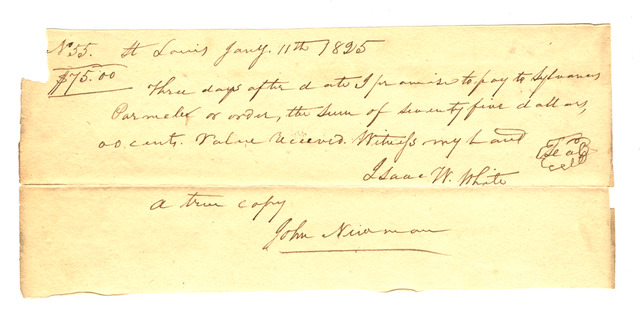 No 55. St Louis Jany. 11th 1825
$75.00
Three days after date I promise to pay to Sylvanus
Parmele or order, the sum of seventy five dollars,
00 cents. Value received. Witness my hand
Seal
Isaac W. White
a true copy
John Newman